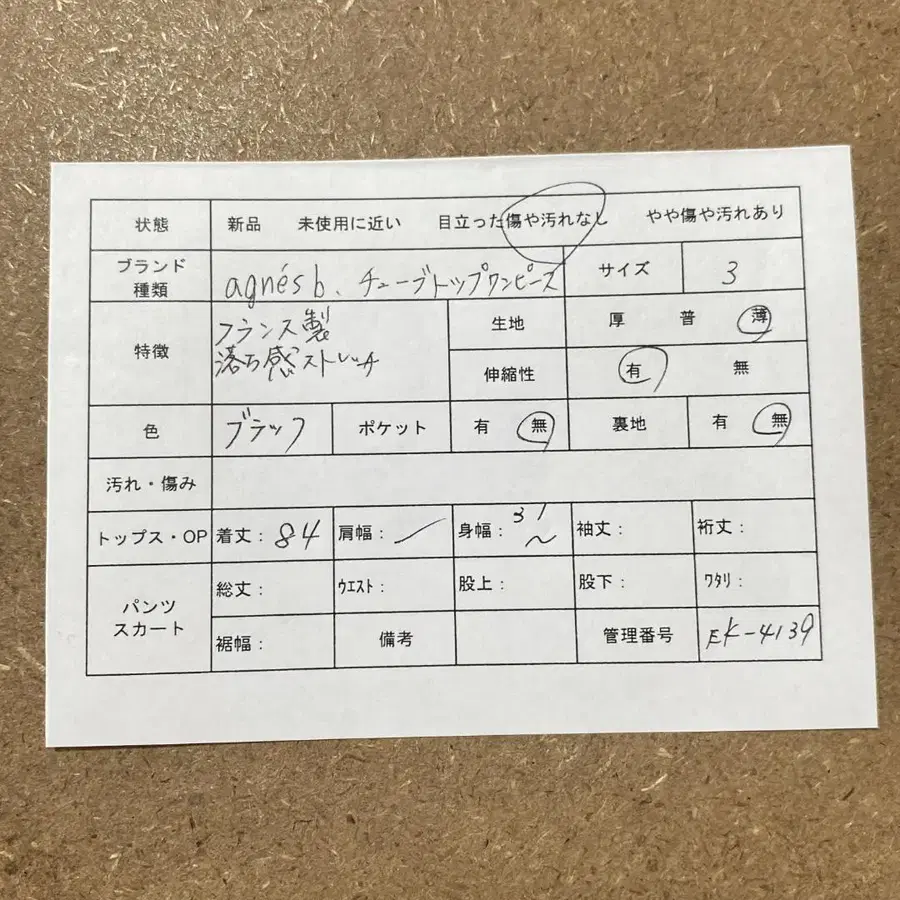 状態 新品 未使用に近い 目立った傷や汚れなし やや傷や汚れあり
ブランド 種類 agnés b. チューブトップワンピース サイズ 3
特徴 フランス製 落ち感ストレッチ
生地 厚 普 薄
伸縮性 有 無
色 ブラック ポケット 有 無 裏地 有 無
汚れ・傷み
トップス・OP 着丈: 84 肩幅: 身幅: 31〜 袖丈: 裄丈:
パンツ スカート 総丈: ウエスト: 股上: 股下: ワタリ:
裾幅: 備考 管理番号 EK-4139